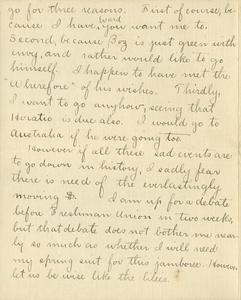 go for three reasons. First of course, be
cause I have heard you want me to.
Second, because Boz is just green with
envy, and rather would like to go
himself. I happen to have met the
"Wherefore" of his wishes. Thirdly,
I want to go anyhow, seeing that
Horatio is due also. I would go to
Australia if he were going too.
However if all these sad events are
to go down in history, I sadly fear
there is need of the everlastingly
moving $. I am up for a debate
before Freshman Union in two weeks,
but that debate does not bother me near
ly so much as whether I will need
my spring suit for this jamboree. However
let us be wise like the lilies.